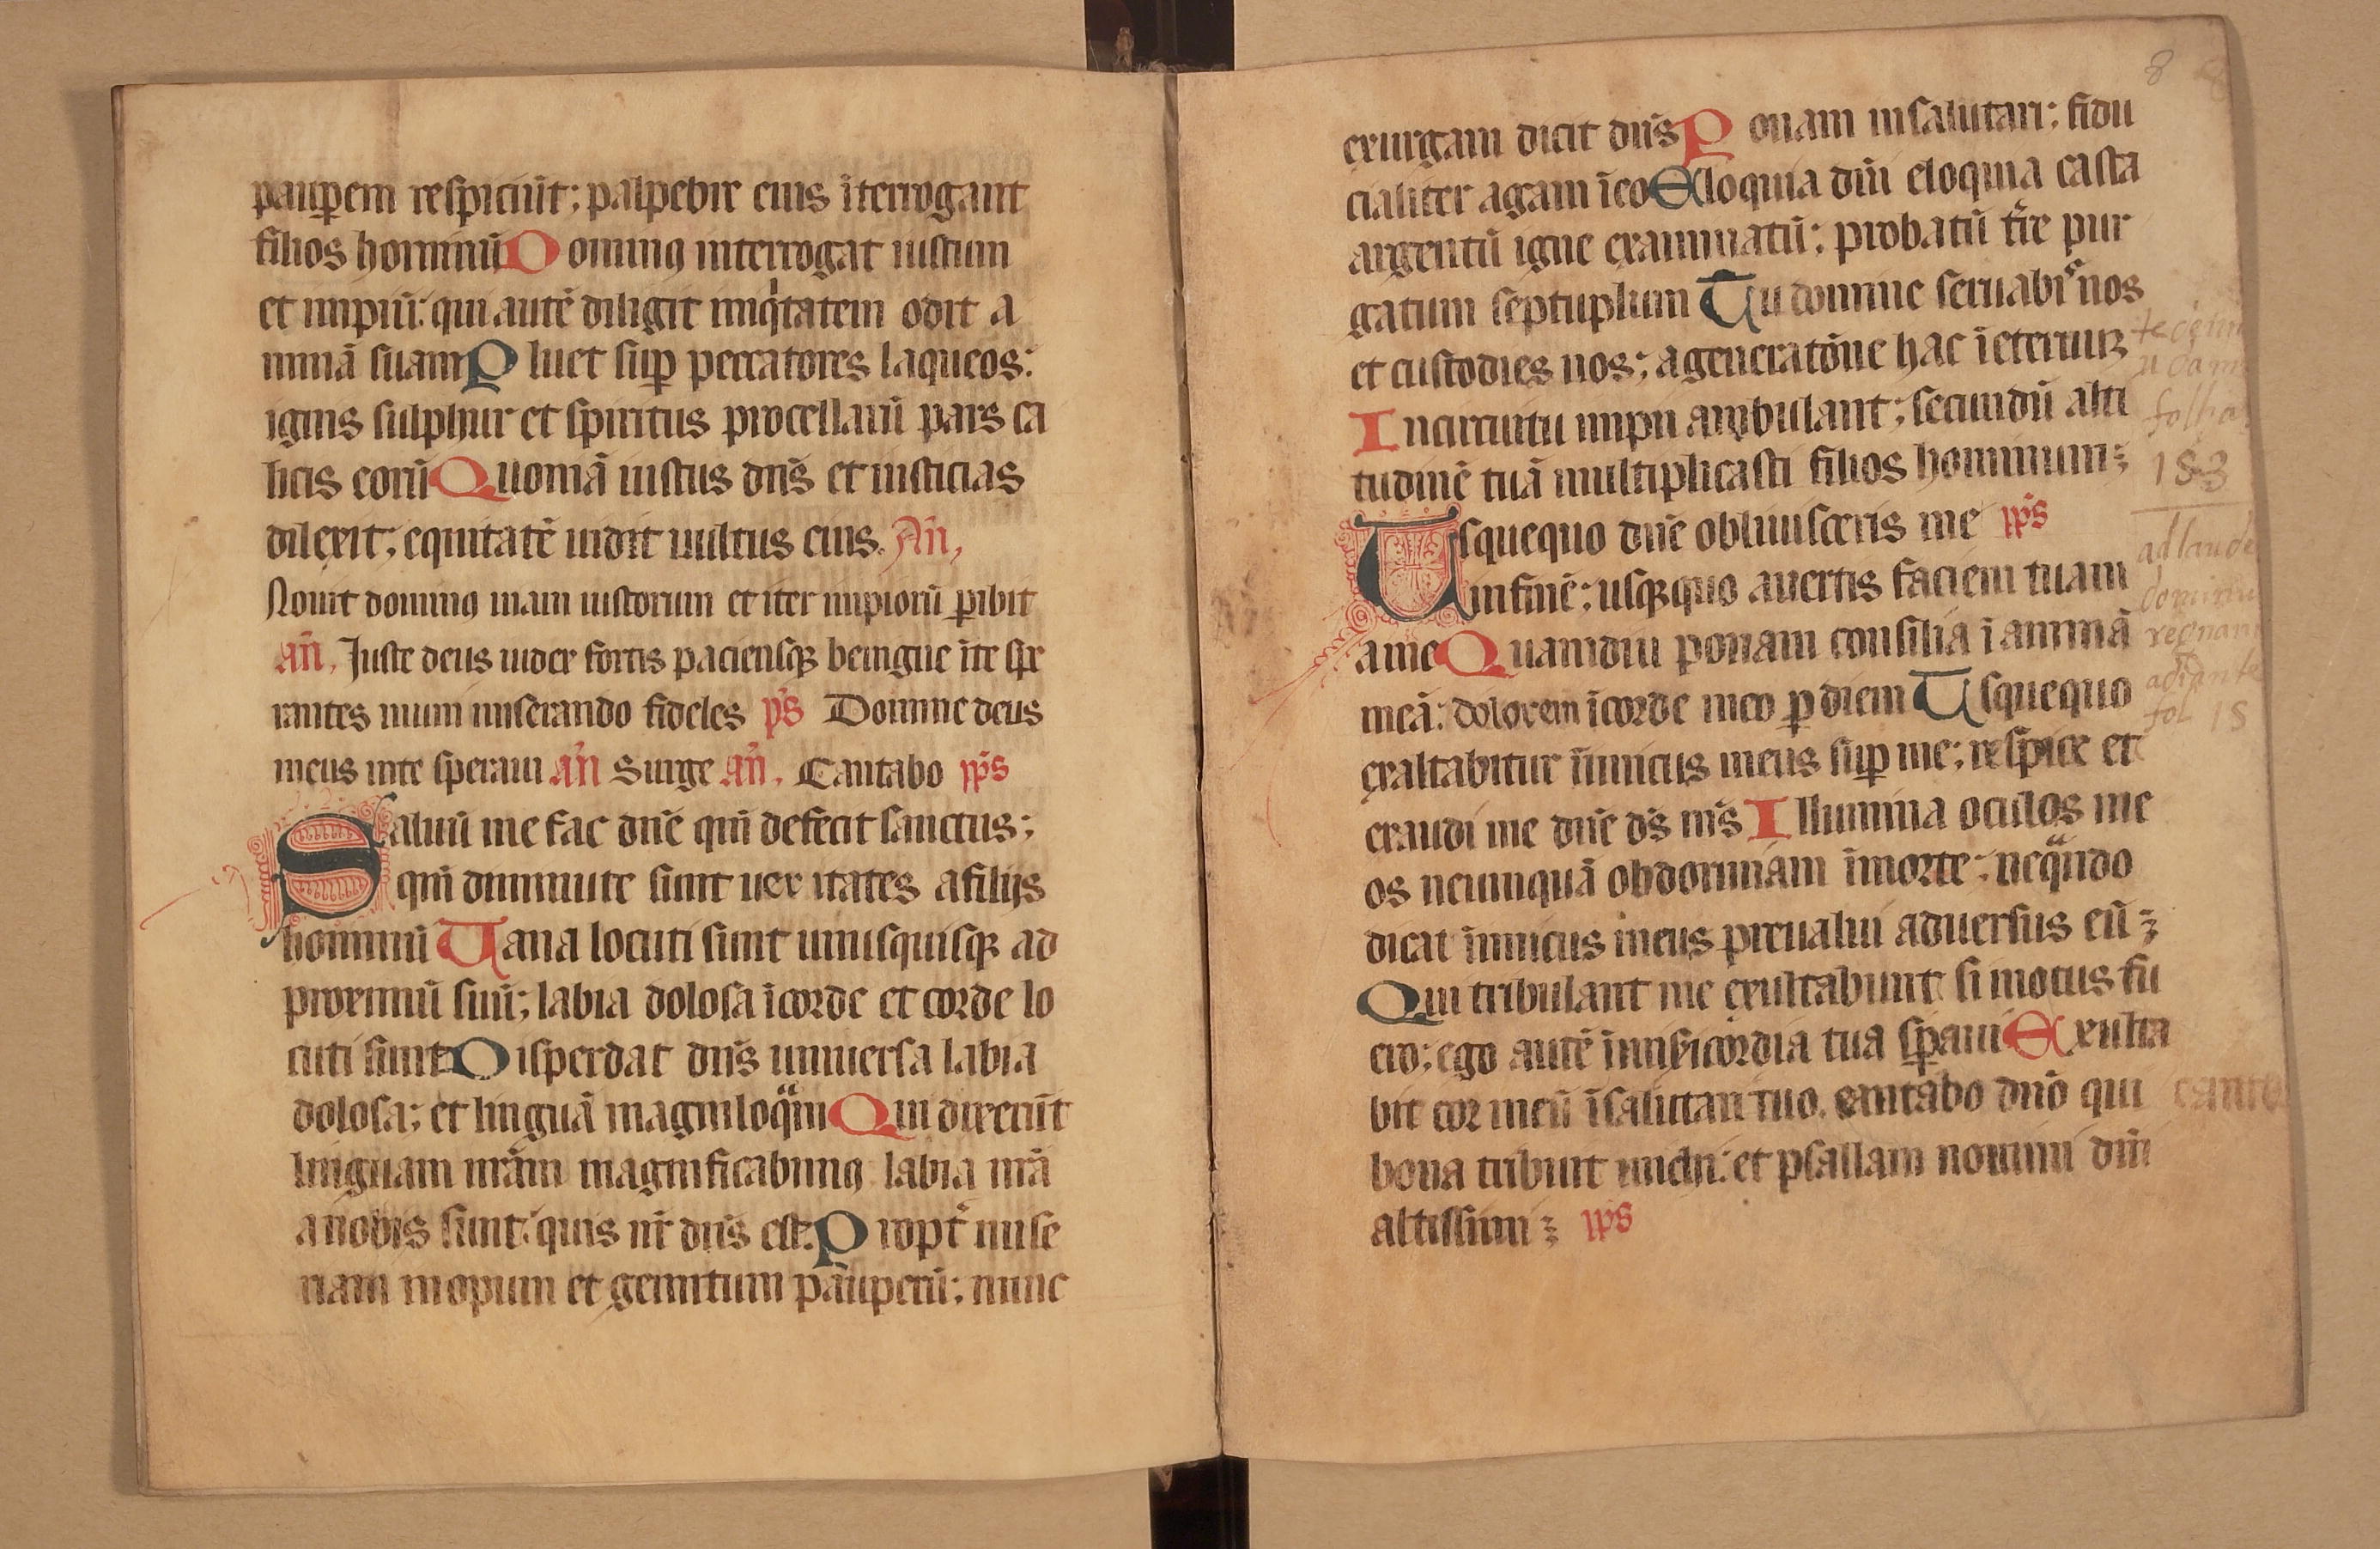 paup̱em respiciūt; palpebre eius īterrogant
filios hominū Dominꝰ interrogat iustum
et impiū: qui autē diligit iniqͥtatem odit a
nimā suam Pluet sup̱ peccatores laqueos:
ignis sulphur et spiritus procellarū pars ca
licis eorū Quoniā iustus dn̄s et iusticias
dilexit; equitatē uidit uultus eius. An̄,
Nouit dominꝰ uiam iustorum et iter impiorū p̱ibit
an̄, Juste deus iudex fortis paciensqꝫ benigne īte spe
rantes muni miserando fideles ps̄ Domine deus
meus inte speraui an̄ Surge an̄, Cantabo ps̄
Saluū me fac dn̄e qm̄ defecit sanctus;
qm̄ diminute sunt ueritates afilijs
hominū Uana locuti sunt unusquisqꝫ ad
proximū suū; labia dolosa īcorde et corde lo
cuti sunt Disperdat dn̄s uniuersa labia
dolosa; et linguā magniloqͣm Qui dixerūt
linguam nr̄am magnificabimꝰ labia nr̄a
anobis sunt: quis nr̄ dn̄s est: Propt̄ mise
riam inopum et gemitum pauperū; nunc
exurgam dicit dn̄s Ponam insalutari; fidu
cialiter agam īeo Eloquia dn̄i eloquia casta
argentū igne examinatū; probatū tr̄e pur
gatum septuplum Tu domine seruabis nos
et custodies nos; ageneratōne hac īeternuꝫ
Incircuitu impii ambulant; secundū alti
tudinē tuā multiplicasti filios hominum;
Usquequo dn̄e obliuisceris me ps̄
infinē; usqꝫquo auertis faciem tuam
ame Quamdiu ponam consilia ī animā
meā: dolorem īcorde meo p̱ diem Usquequo
exaltabitur īimicus meus sup̱ me; respice et
exaudi me dn̄e ds̄ ms̄ Illumina oculos me
os neumquā obdormiam īmorte; neqͣndo
dicat īimicus meus preualui aduersus eū;
Qui tribulant me exultabunt si motus fu
ero; ego autē īmisericordia tua sp̱aui Exulta
bit cor meū īsalutari tuo. cantabo dn̄o qui
bona tribuit michi: et psallam nomini dn̄i
altissimi; ps̄
8
folha
183
ad laude
dominu
regnam
adiante
fol 18